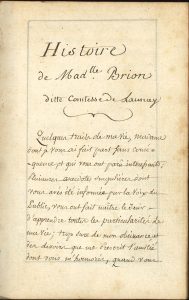 Histoire
de Mad.lle Brion
ditte Comtesse de Launay
Quelques traits de ma vie, madame
dont je vous ai fait part sans conse-
quence et qui vous ont paru interessants,
Plusieurs anecdotes singulieres dont
vous avés été informée par la voix du
Public, vous ont fait naitre le desir
d'apprendre toutes les particularités de
ma vie; trop sure de mon obéissance et
des devoirs que me prescrit l'amitié
dont vous m'honorés, quand vous